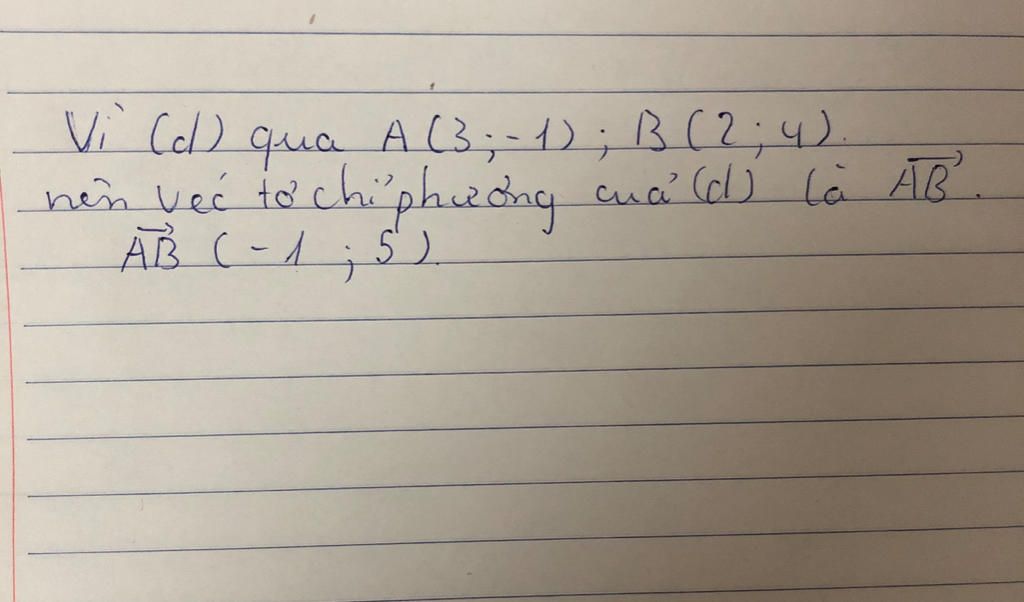 Vì (d) qua A(3;-1); B(2;4).
nên véc tơ chỉ phương của (d) là \overrightarrow{AB}.
\overrightarrow{AB} (-1;5).